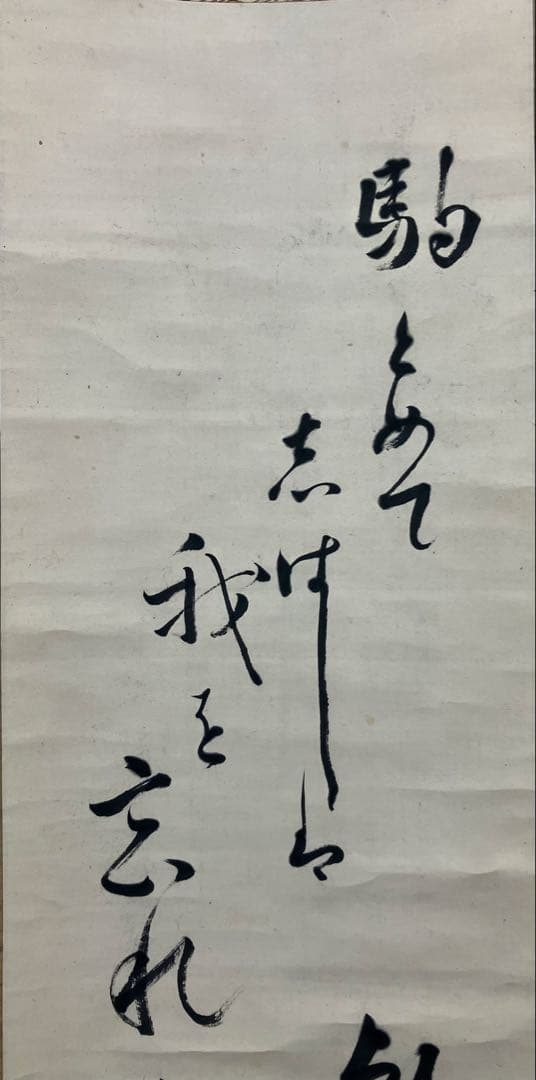 駒とめて
志はしは
我を
忘れ